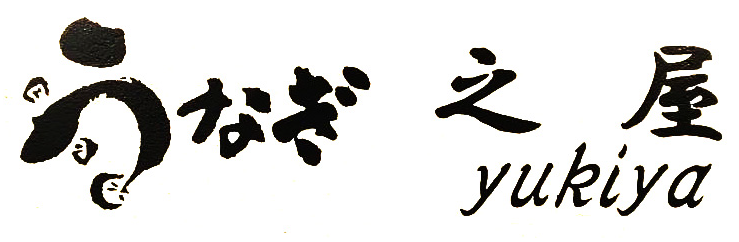 うなぎ 之屋
yukiya